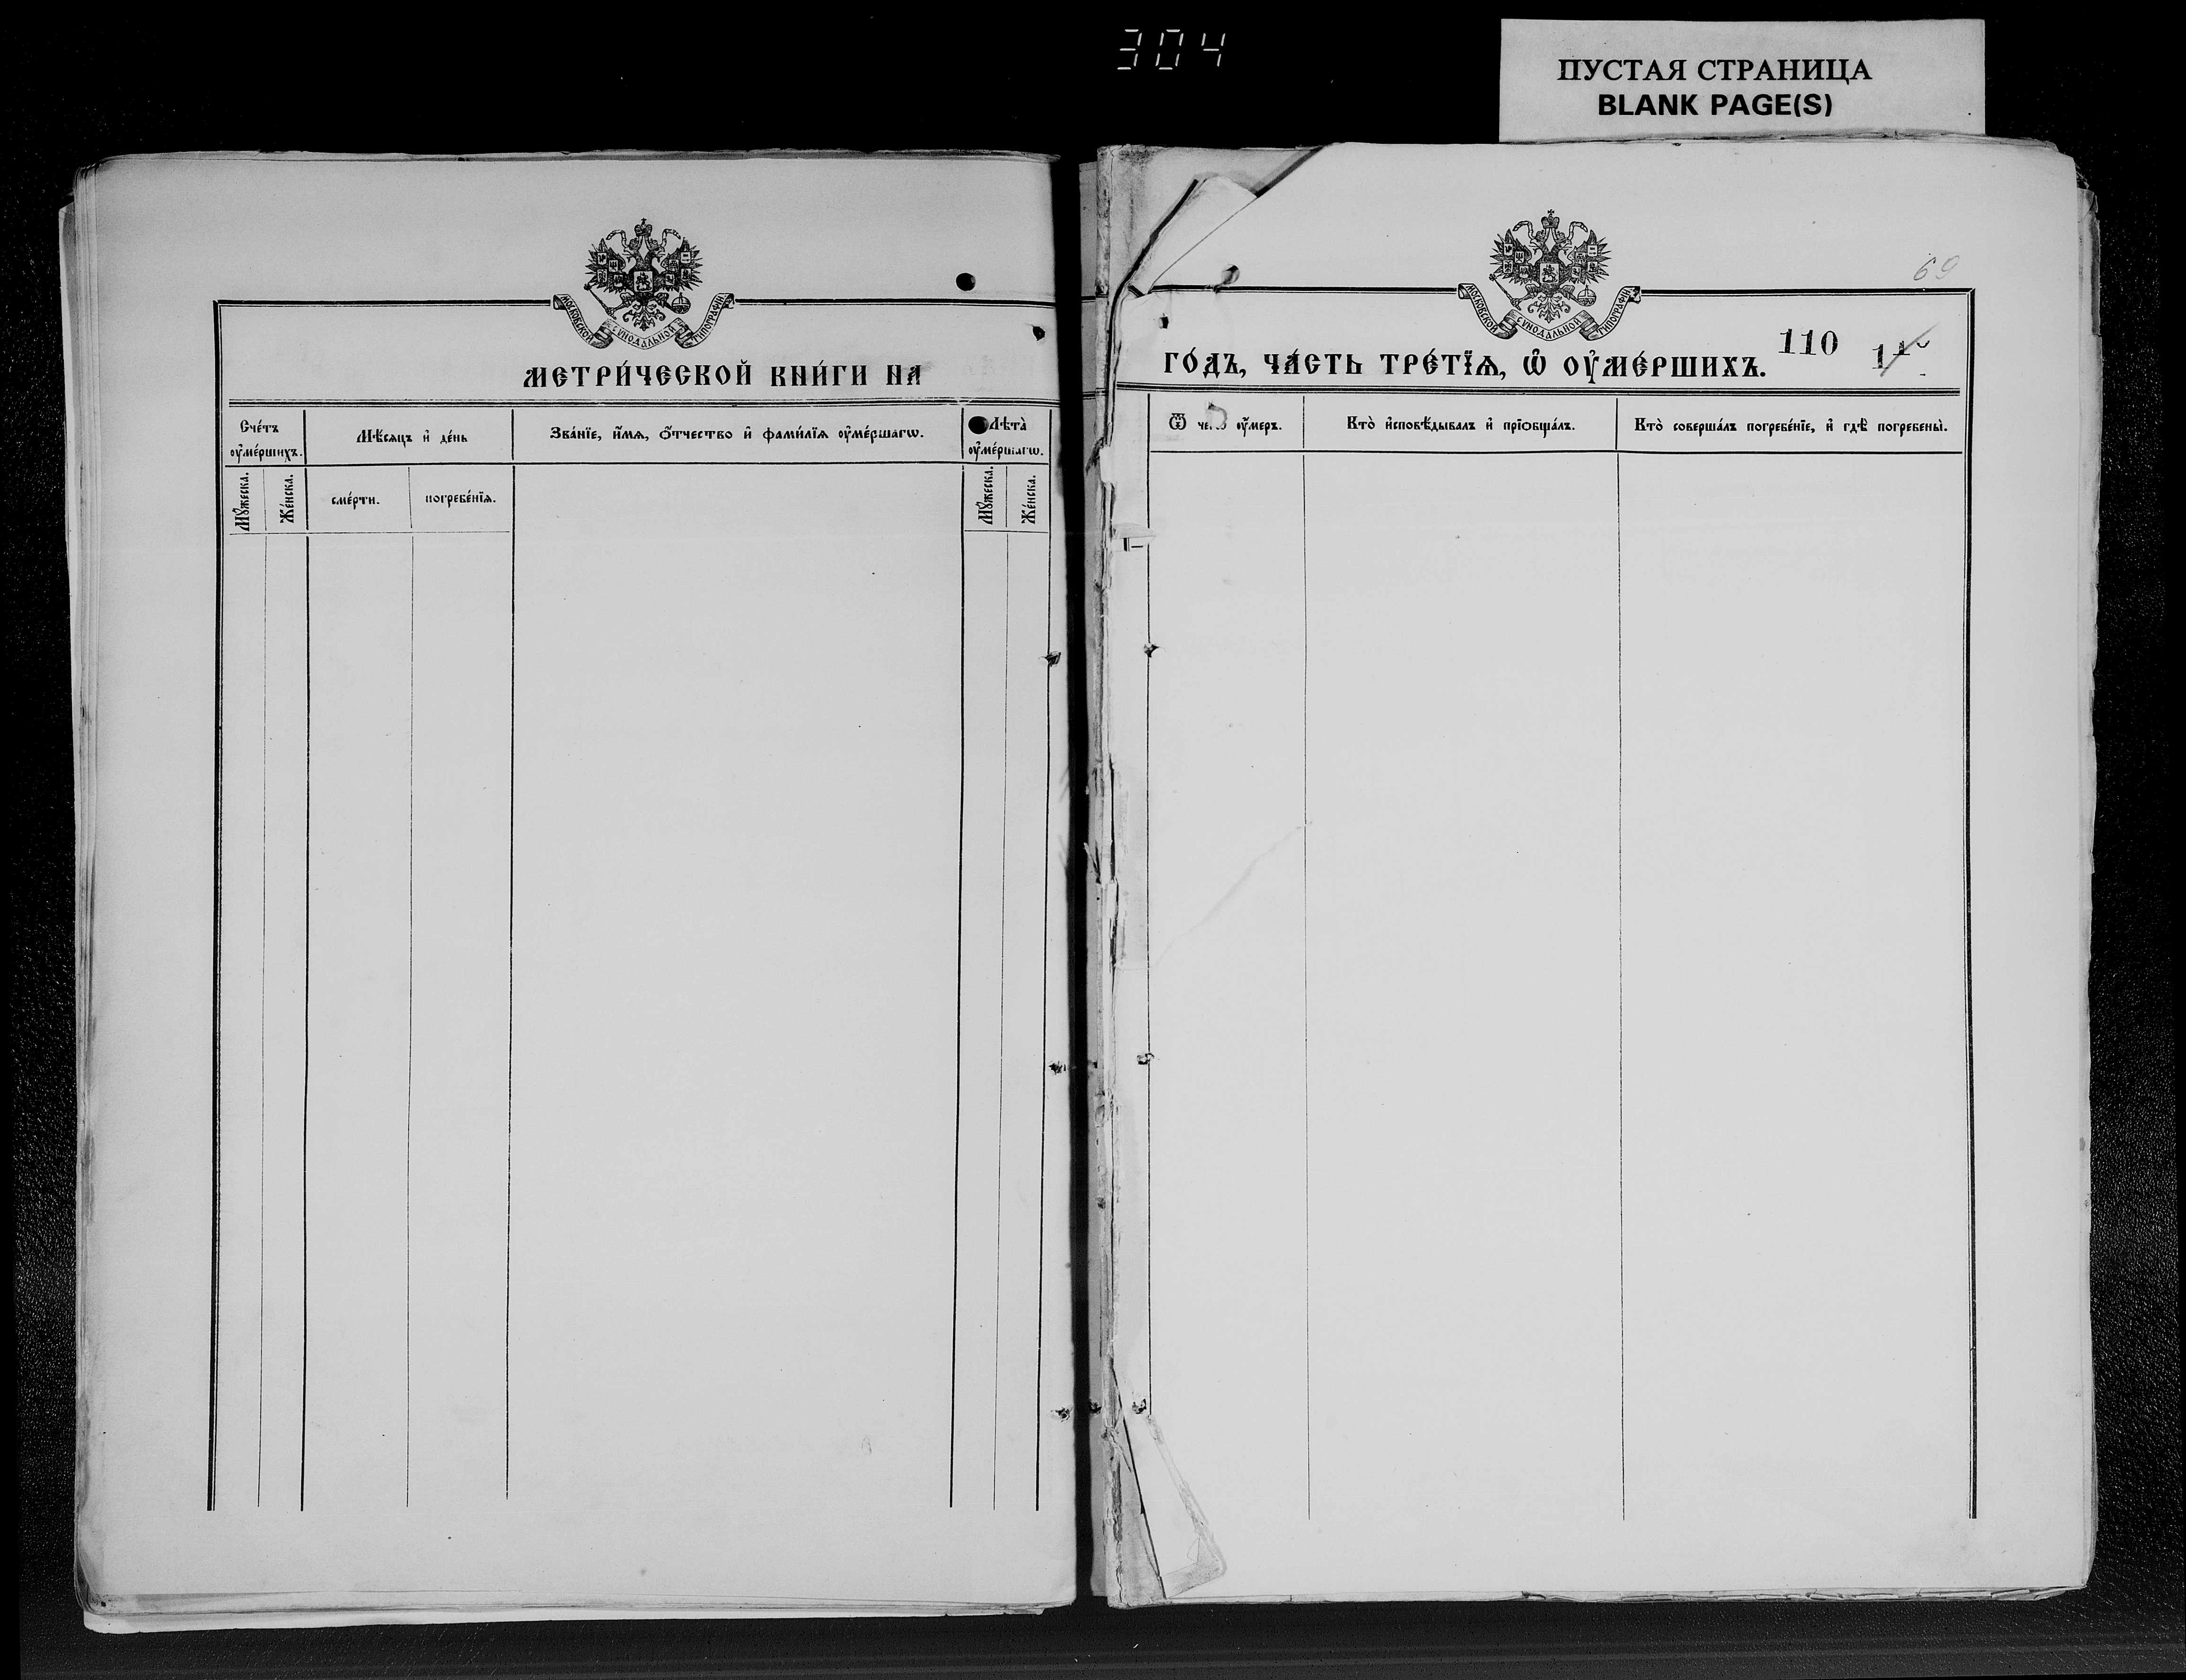 304
ПУСТАЯ СТРАНИЦА
BLANK PAGE(S)
МОСКОВСКОЙ СѴНОДАЛЬНОЙ ТИПОГРАФІИ
МЕТРИ́ЧЕСКОЙ КНИ́ГИ НА
Сче́тъ ᲂу҆ме́ршихъ.
Мѣ́сяцъ и҆ де́нь
Зва́нїе, и҆́мѧ, ѻ҆́тчество и҆ фами́лїѧ ᲂу҆ме́ршагѡ.
Лѣ́та ᲂу҆ме́ршагѡ.
Мꙋ́жеска.
Же́нска.
сме́рти.
погребе́нїѧ.
Мꙋ́жеска.
Же́нска.
69
МОСКОВСКОЙ СѴНОДАЛЬНОЙ ТИПОГРАФІИ
ГО́ДЪ, ЧА́СТЬ ТРЕ́ТЇѦ, Ѡ҆ ОУ҆МЕ́РШИХЪ.
110
Ѿ чего ᲂу҆́меръ.
Кто̀ и҆сповѣ́дывалъ и҆ прїѻбща́лъ.
Кто̀ соверша́лъ погребе́нїе, и҆ гдѣ̀ погребены̀.